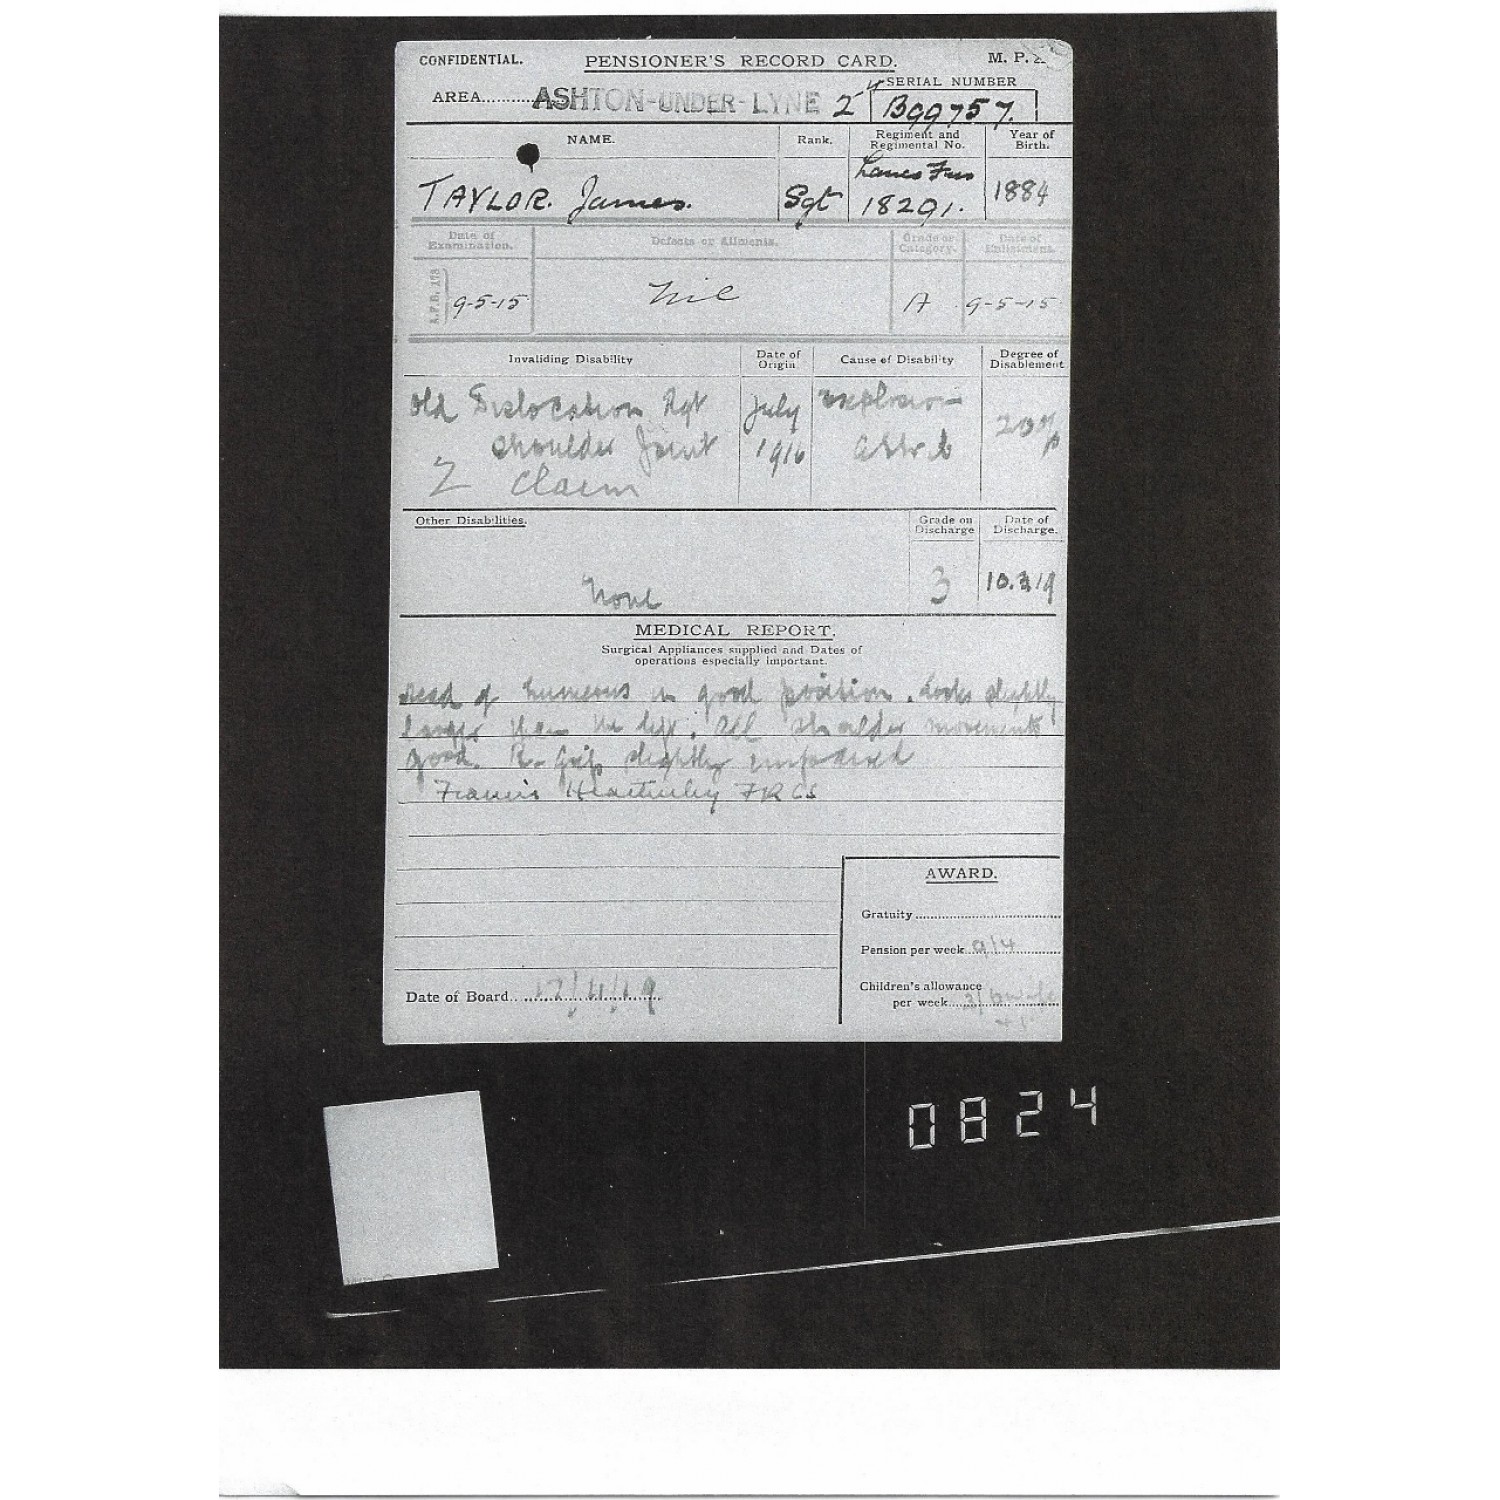 CONFIDENTIAL. PENSIONER'S RECORD CARD. M. P.
AREA.......... ASHTON-UNDER-LYNE 2 SERIAL NUMBER
B99757.
NAME. Rank. Regiment and Regimental No. Year of Birth.
Lancs Fus
TAYLOR. James. Sgt 18291. 1884
Date of Examination. Defects or Ailments. Grade or Category. Date of Enlistment.
A.F.B. 178 9-5-15 Nil A 9-5-15
Invaliding Disability Date of Origin Cause of Disability Degree of Disablement
Old Dislocation Rgt July explosion 20%
shoulder Joint 1916 Attrib
Z Claim
Other Disabilities. Grade on Discharge Date of Discharge.
None 3 10.3.19
MEDICAL REPORT.
Surgical Appliances supplied and Dates of
operations especially important.
Head of humerous in good position. Looks slightly
larger than the left. All shoulder movements
good. R. Grip slightly impaired
Francis FRCS
AWARD.
Gratuity
Pension per week 9/4
Children's allowance
per week
Date of Board
0824